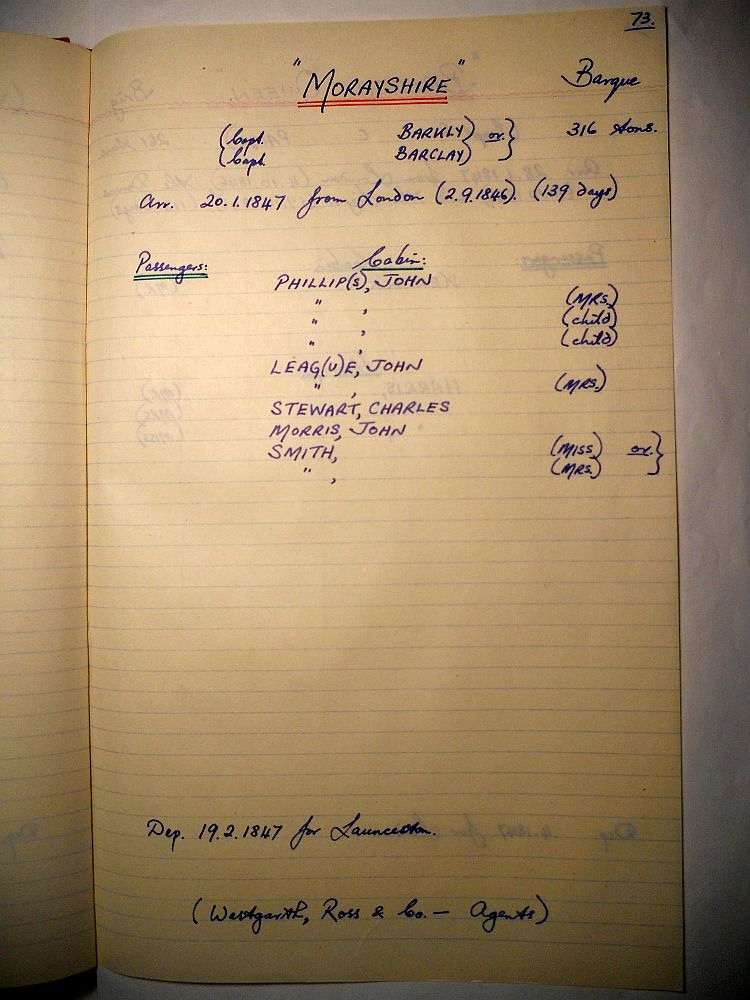 73.
"MORAYSHIRE" Barque
{Capt. BARKLY) or.} 316 tons.
{Capt. BARCLAY)
Arr. 20.1.1847 from London (2.9.1846). (139 days)
Passengers: Cabin:
PHILLIP(S), JOHN
" , (MRS.)
" , (child)
" , (child)
LEAG(U)E, JOHN
" , (MRS.)
STEWART, CHARLES
MORRIS, JOHN
SMITH, (MISS) or.}
" , (MRS.)
Dep. 19.2.1847 for Launceston.
(Westgarth, Ross & Co. — Agents)